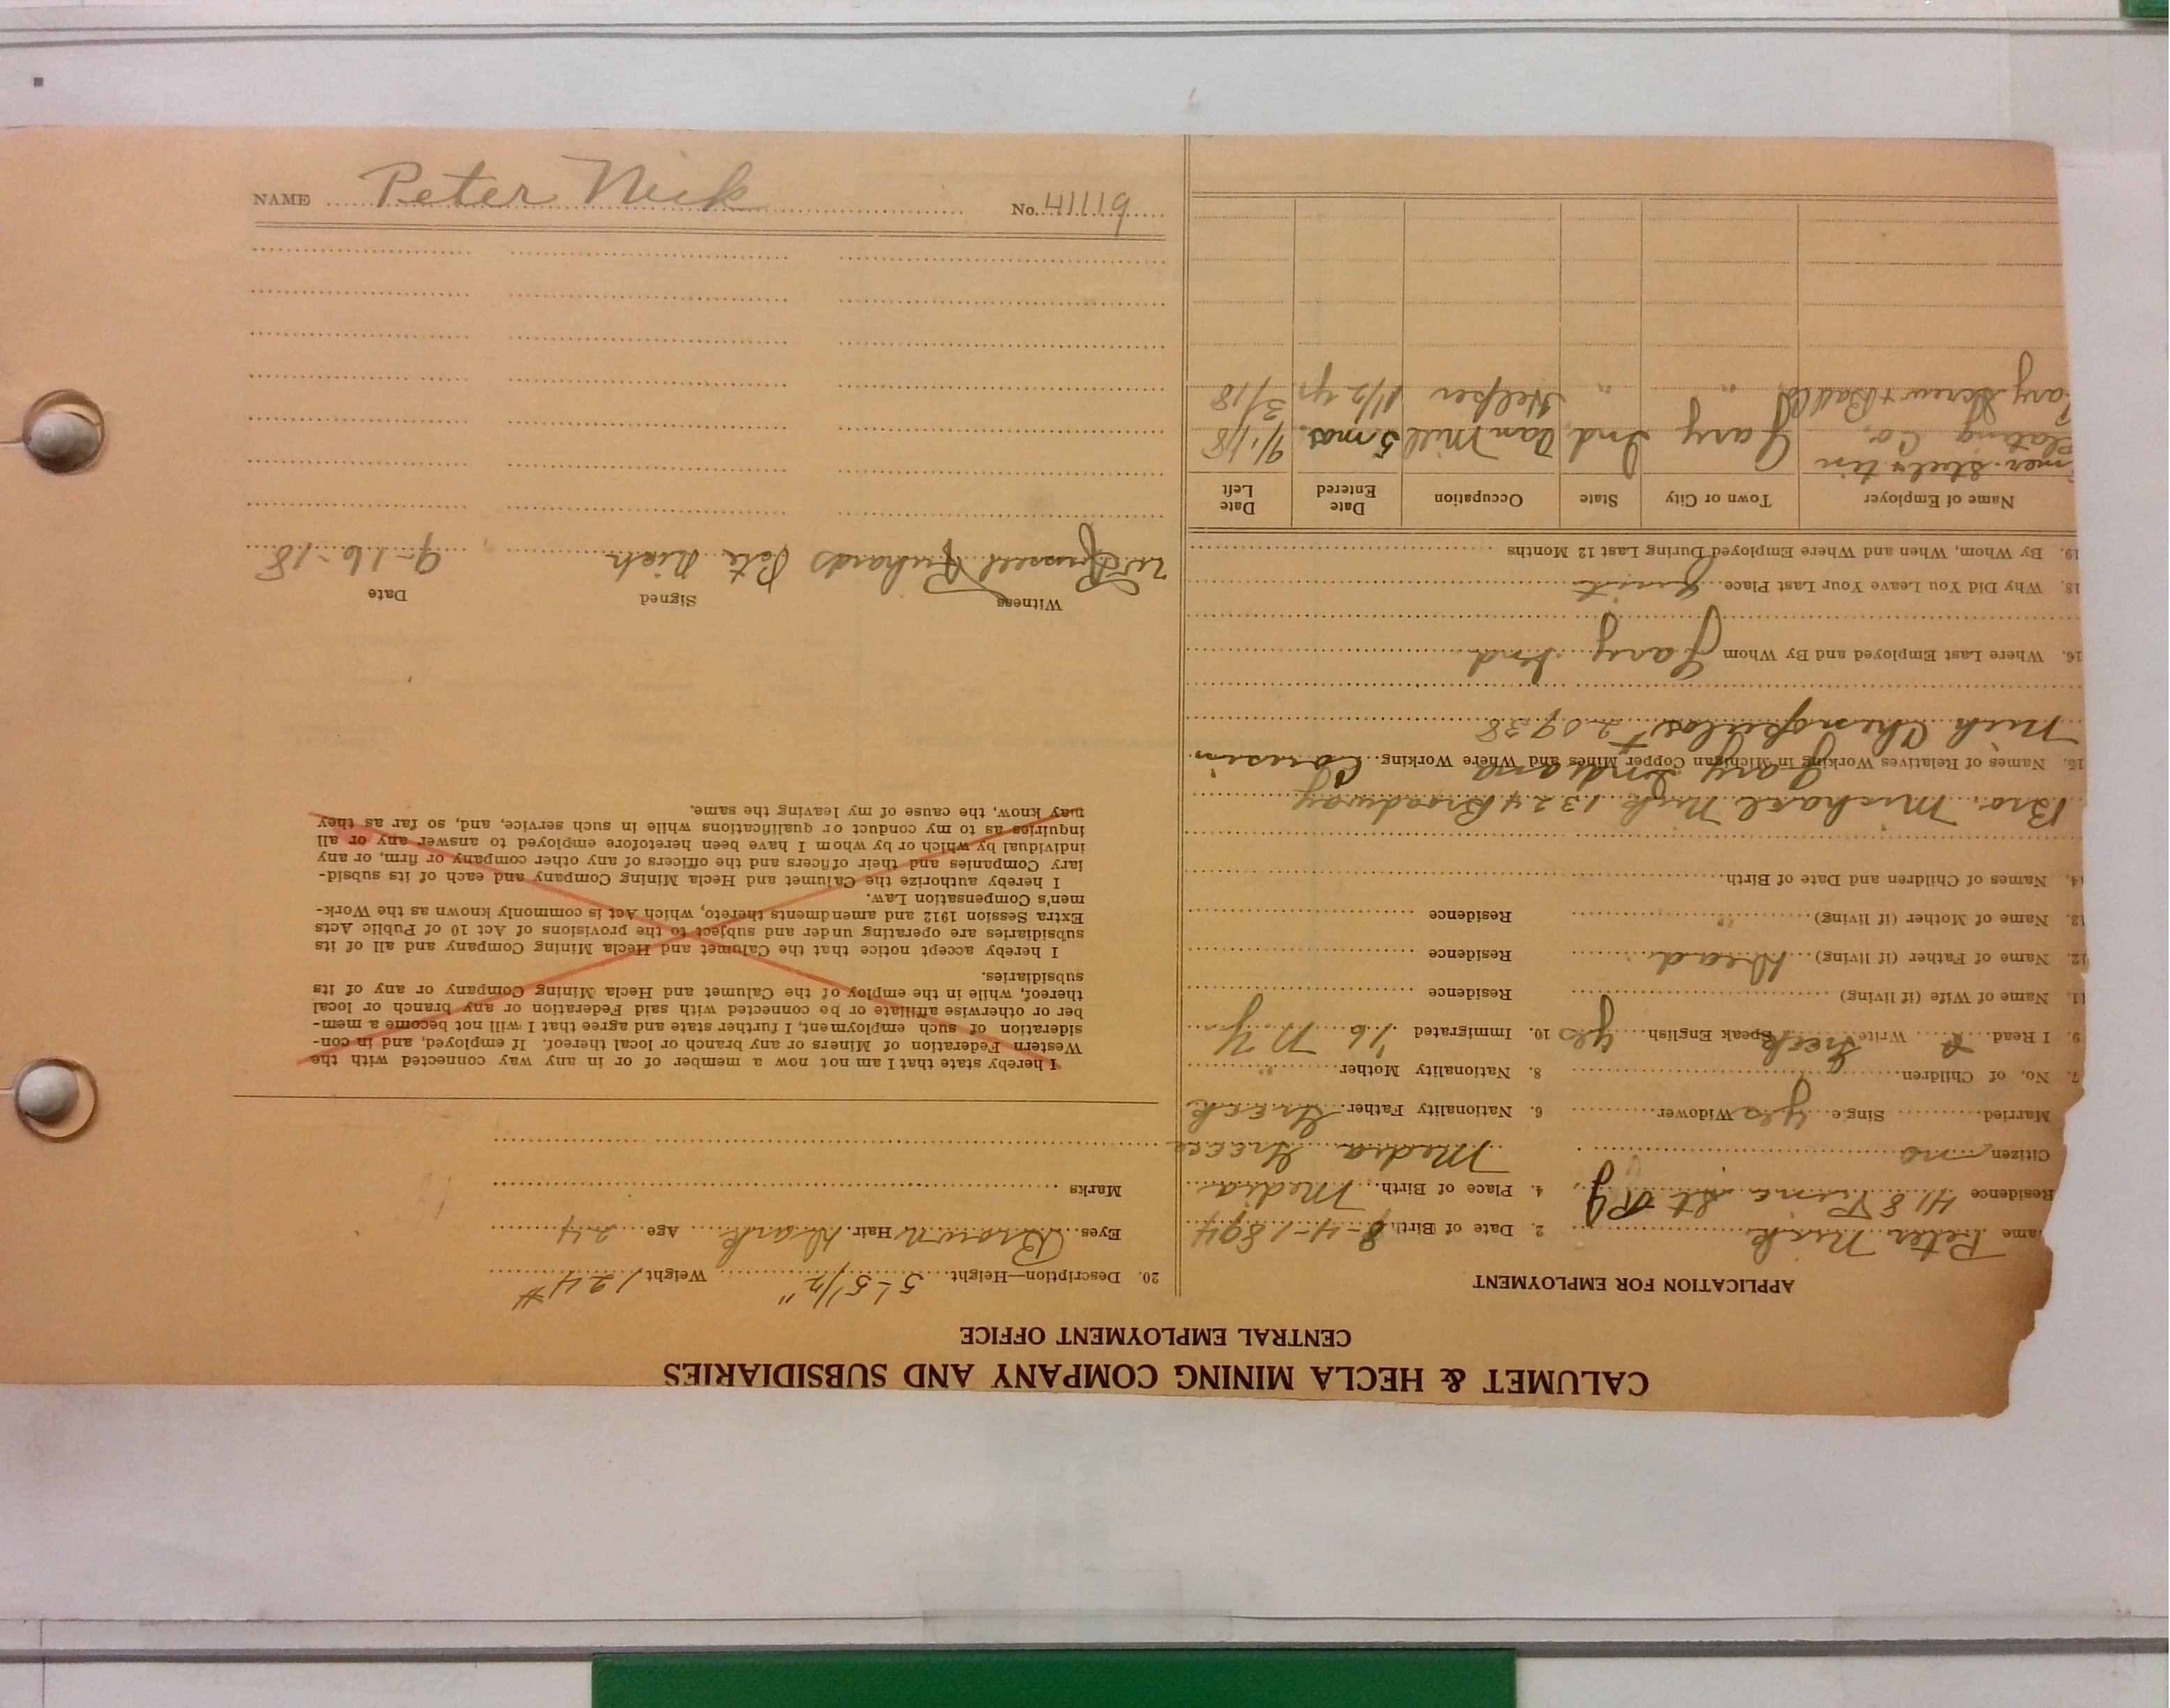 NAME Peter Nick No. 41119
CALUMET & HECLA MINING COMPANY AND SUBSIDIARIES
CENTRAL EMPLOYMENT OFFICE
APPLICATION FOR EMPLOYMENT
ame Peter Nick 2. Date of Birth 8-4-1894
Residence 418 Pine St 4. Place of Birth Media
Citizen no Media Greece
Married Sing'e yes Widower 6. Nationality Father Greek
7. No. of Children 8. Nationality Mother "
9. I Read Write Greek Speak English yes 10. Immigrated '16 N Y
11. Name of Wife (if living) Residence
12. Name of Father (if living) Dead Residence
13. Name of Mother (if living) " Residence
14. Names of Children and Date of Birth
Bro. Michael Nick 1324 Broadway
Gary Indiana
15. Names of Relatives Working in Michigan Copper Mines and Where Working Cousin
Nick 20938
16. Where Last Employed and By Whom Gary Ind
18. Why Did You Leave Your Last Place Quit
19. By Whom, When and Where Employed During Last 12 Months
Name of Employer Town or City State Occupation Date Entered Date Left
mer. Steel & tin
Plating Co. Gary Ind. Mill 5 mos. 9/1/18
Gary Screw & " " Helper 1 1/2 yr. 3/18
20. Description—Height 5-5 1/2" Weight 124#
Eyes Brown Hair Dark Age 24
Marks
I hereby state that I am not now a member of or in any way connected with the
Western Federation of Miners or any branch or local thereof. If employed, and in con-
sideration of such employment, I further state and agree that I will not become a mem-
ber or otherwise affiliate or be connected with said Federation or any branch or local
thereof, while in the employ of the Calumet and Hecla Mining Company or any of its
subsidiaries.
I hereby accept notice that the Calumet and Hecla Mining Company and all of its
subsidiaries are operating under and subject to the provisions of Act 10 of Public Acts
Extra Session 1912 and amendments thereto, which Act is commonly known as the Work-
men's Compensation Law.
I hereby authorize the Calumet and Hecla Mining Company and each of its subsid-
iary Companies and their officers and the officers of any other company or firm, or any
individual by which or by whom I have been heretofore employed to answer any or all
inquiries as to my conduct or qualifications while in such service, and, so far as they
may know, the cause of my leaving the same.
Witness Signed Date
Russell Richards Pete Nick 9-16-18